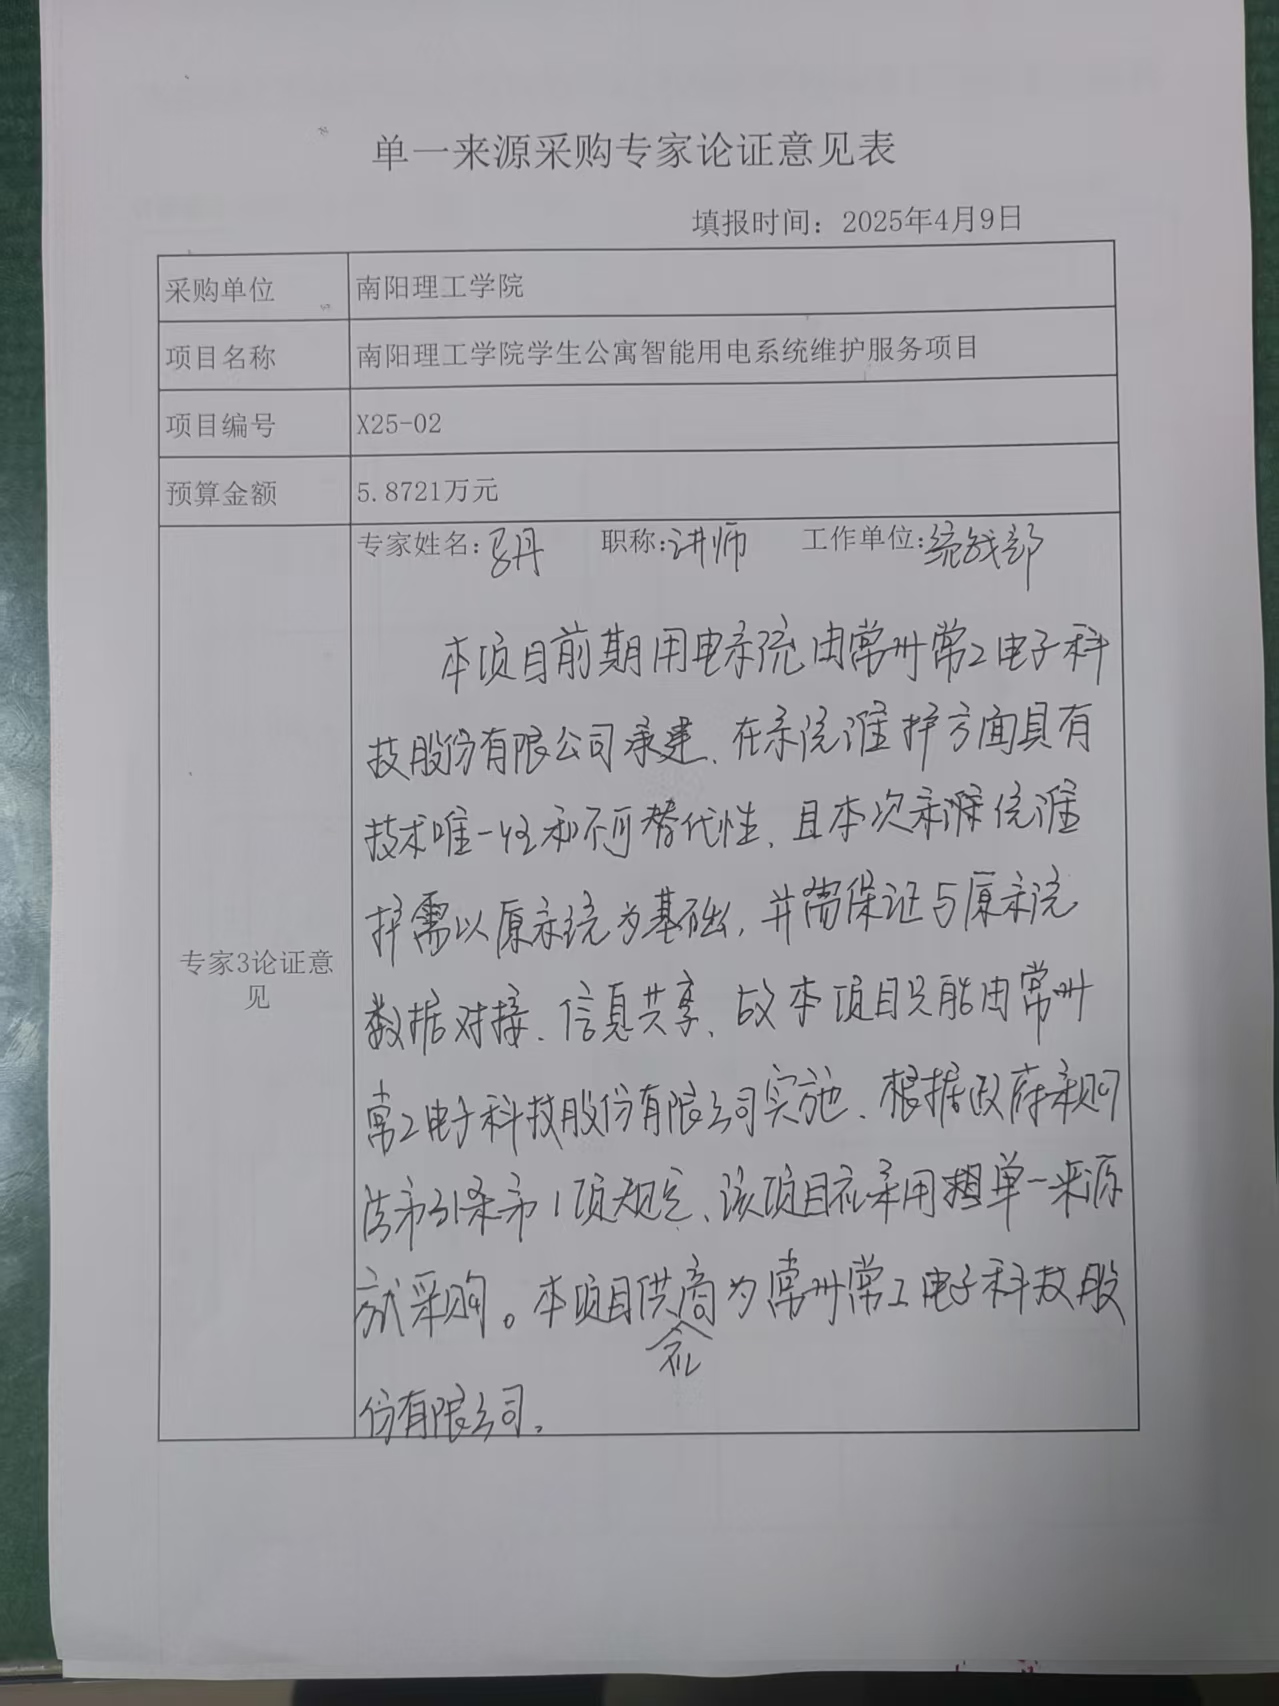 单一来源采购专家论证意见表
填报时间：2025年4月9日
采购单位 南阳理工学院
项目名称 南阳理工学院学生公寓智能用电系统维护服务项目
项目编号 X25-02
预算金额 5.8721万元
专家姓名：马丹 职称：讲师 工作单位：统战部
本项目前期用电系统由常州常工电子科
技股份有限公司承建、在系统维护方面具有
技术唯一性和不可替代性、且本次系统维
护需以原系统为基础，并需保证与原系统
专家3论证意
见
数据对接、信息共享、故本项目只能由常州
常工电子科技股份有限公司实施、根据政府采购
法第31条第1项规定、该项目应采用单一来源
式采购。本项目供应商为常州常工电子科技股
份有限公司。